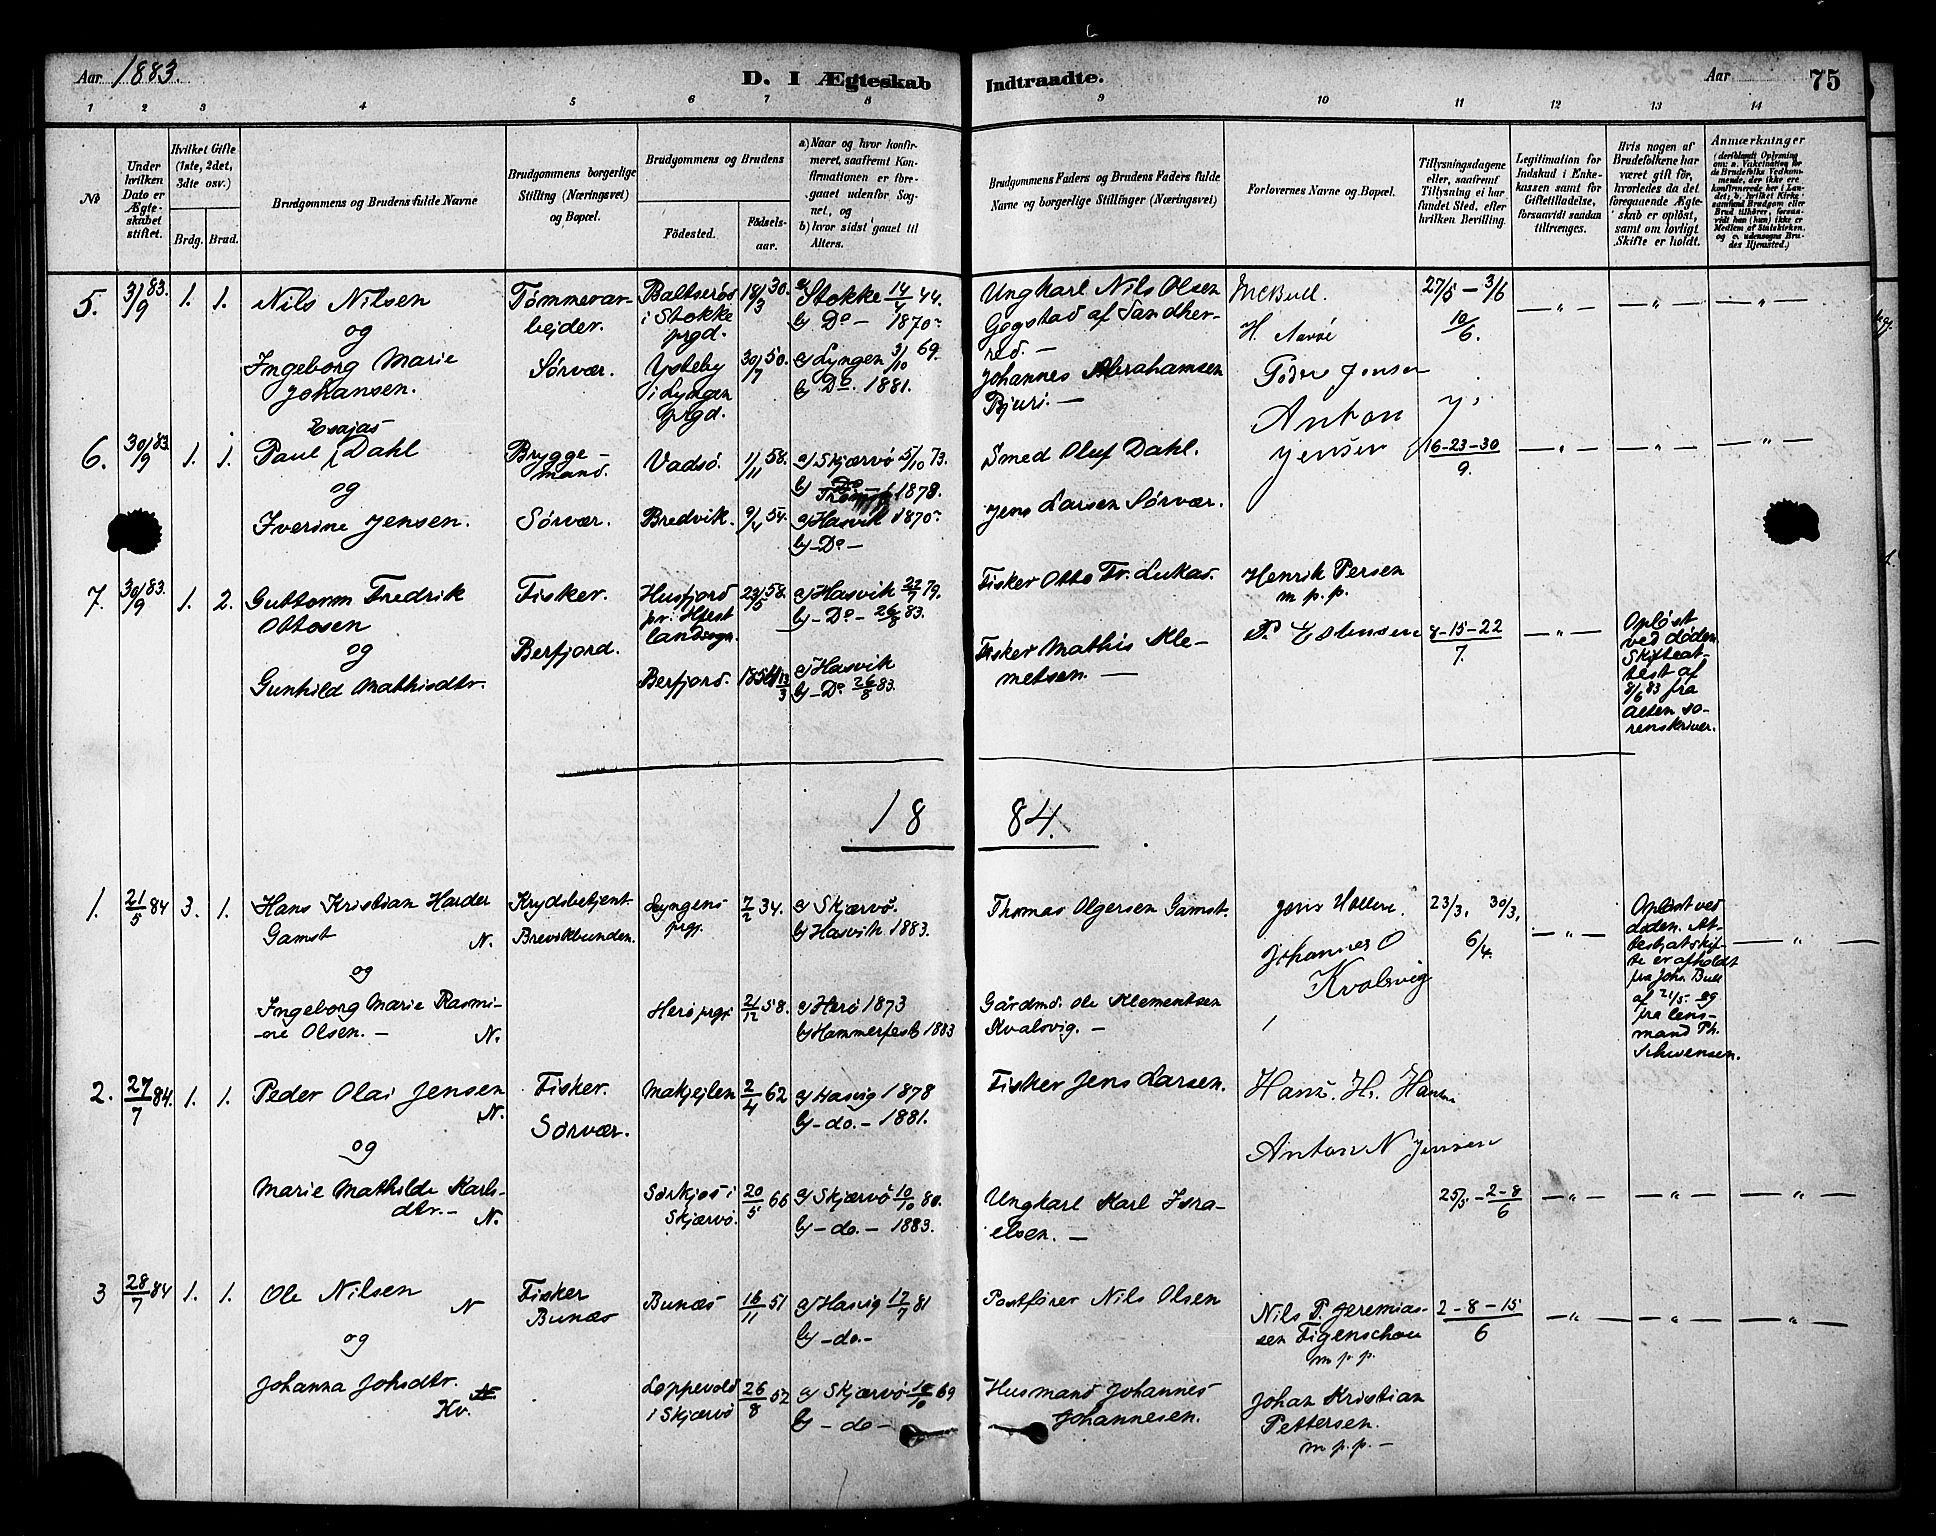 Aar 1883.
D. I Ægteskab Indtraadte.
Aar 75
1 2 3 4 5 6 7 8 9 10 11 12 13 14
No
Under hvilken Dato er Ægteskabet stiftet.
Hvilket Gifte (1ste, 2det, 3dte osv.)
Brdg. Brud.
Brudgommens og Brudens fulde Navne
Brudgommens borgerlige Stilling (Næringsvei) og Bopæl.
Brudgommens og Brudens
Födested. Födselsaar.
a) Naar og hvor konfirmeret, saafremt Konfirmationen er foregaaet udenför Sognet, og
b) hvor sidst gaaet til Alters.
Brudgommens Faders og Brudens Faders fulde Navne og borgerlige Stillinger (Næringsvei)
Forlovernes Navne og Bopæl.
Tillysningsdagene eller, saafremt Tillysning ei har fundet Sted, efter hvilken Bevilling.
Legitimation for Indskud i Enkekassen samt for Giftetilladelse, forsaavidt saadan tiltrænges.
Hvis nogen af Brudefolkene har været gift för, hvorledes da det foregaaende Ægteskab er oplöst, samt om lovligt Skifte er holdt.
Anmærkninger
(deriblandt Oplysning om: a. Vaccination for de Brudefolks Vedkommende, der ikke ere konfirmerede her i Landet; b. hvilket Kirkesamfund Brudgom eller Brud tilhörer, forsaavidt han (hun) ikke er Medlem af Statskirken, og c. udensogns Brudes Hjemsted.)
5. 3/9 83. 1. 1. Nils Nilsen
og
Ingeborg Marie
Johansen.
Tømmerarbejder.
Sørvær.
Baltserøs
i Stokke
prgd. 18/3 30.
Ysteby
i Lyngen
prgd. 30/7 50.
a) Stokke 14/4 44.
b) Do - 1870.
a) Lyngen 3/10 69.
b) Do. 1881.
Ungkarl Nils Olsen
Gogstad af Sandherred. -
Johannes Abrahamsen
Bjuri. -
H. Navøe
Jensen
27/5 - 3/6
10/6.
- " - - " - - " -
6. 30/9 83. 1. 1. Paul Esajas Dahl
og
Iverine Jensen.
Bryggemand.
Sørvær.
Vadsø. 1/11 58.
Bredvik. 9/4 54.
a) Skjærvø 5/10 73.
b) Do - 1878.
a) Hasvik 1870.
b) - Do -
Smed Oluf Dahl.
Jens Larsen Sørvær.
Anton
Jensen
16-23-30
9.
- " - - " - - " -
7. 30/9 83. 1. 2. Guttorm Fredrik
Ottosen
og
Gunhild Mathisdtr.
Fisker.
Berfjord.
Husfjord
pr. Hfest
landsogn. 23/5 58.
Berfjord. 1854 13/3
a) Hasvik 27/7 79.
b) - Do - 26/8 83.
a) Hasvik
b) - Do 26/8 83.
Fisker Otto Fr. Lukas.
Fisker Mathis Klemetsen. -
Henrik Persen
m. p. p.
P. Estensen
8-15-22
7.
- " -
Opløst
ved døden.
Skifteattest af
8/6 83 fra
Alten sorenskriver.
1884.
1. 21/5 84 3. 1. Hans Kristian Harder
Gamst N.
og
Ingeborg Marie Rasmine Olsen. - N.
Krydsbetjent
Brevikbunden.
Lyngens
prgj. 7/2 34.
Herø prgj 21/12 58.
a) Skjærvø.
b) Hasvik 1883.
a) Herø 1873
b) Hammerfest 1883
Thomas Olgersen Gamst.
Gårdmd. Ole Klementsen
Kvalsvig. -
Johannes O
Kvalsvig
23/3, 30/3,
6/4.
- " -
Opløst ved
døden. Attest at skifte er afholdt
fra Joh. Bull
af 21/5 - og
fra lensmand Ph.
Schwensen.
- " -
2. 27/7 84. 1. 1. Peder Olai Jensen
N.
og
Marie Mathilde Karlsdtr. - N.
Fisker.
Sørvær.
Makjejlen 2/4 62
Sørkjos i
Skjærvø. 20/5 66
a) Hasvig 1878
b) - do. - 1881.
a) Skjærvø 10/10 80.
b) - do. - 1883.
Fisker Jens Larsen.
Ungkarl Karl Israelsen. -
Hans. H. Hansen
Anton N Jensen
25/5 - 2-8
6
- " - - " - - " -
3 28/7 84 1. 1. Ole Nilsen
N
og
Johanna Johsdtr.
Kv.
Fisker
Bunæs
Bunæs 16/11 51
Loppevold
i Skjærvø 26/8 52
a) Hasvig 12/7 81
b) - do. -
a) Skjærvø 10/10 69
b) - do -
Postfører Nils Olsen
Husmand Johannes
Johannesen.
Nils P. Jeremiassen Figenschou
m p p.
Johan Kristian
Pettersen.
m. p. p. -
2 - 8 - 15
6
- " - - " - - " -